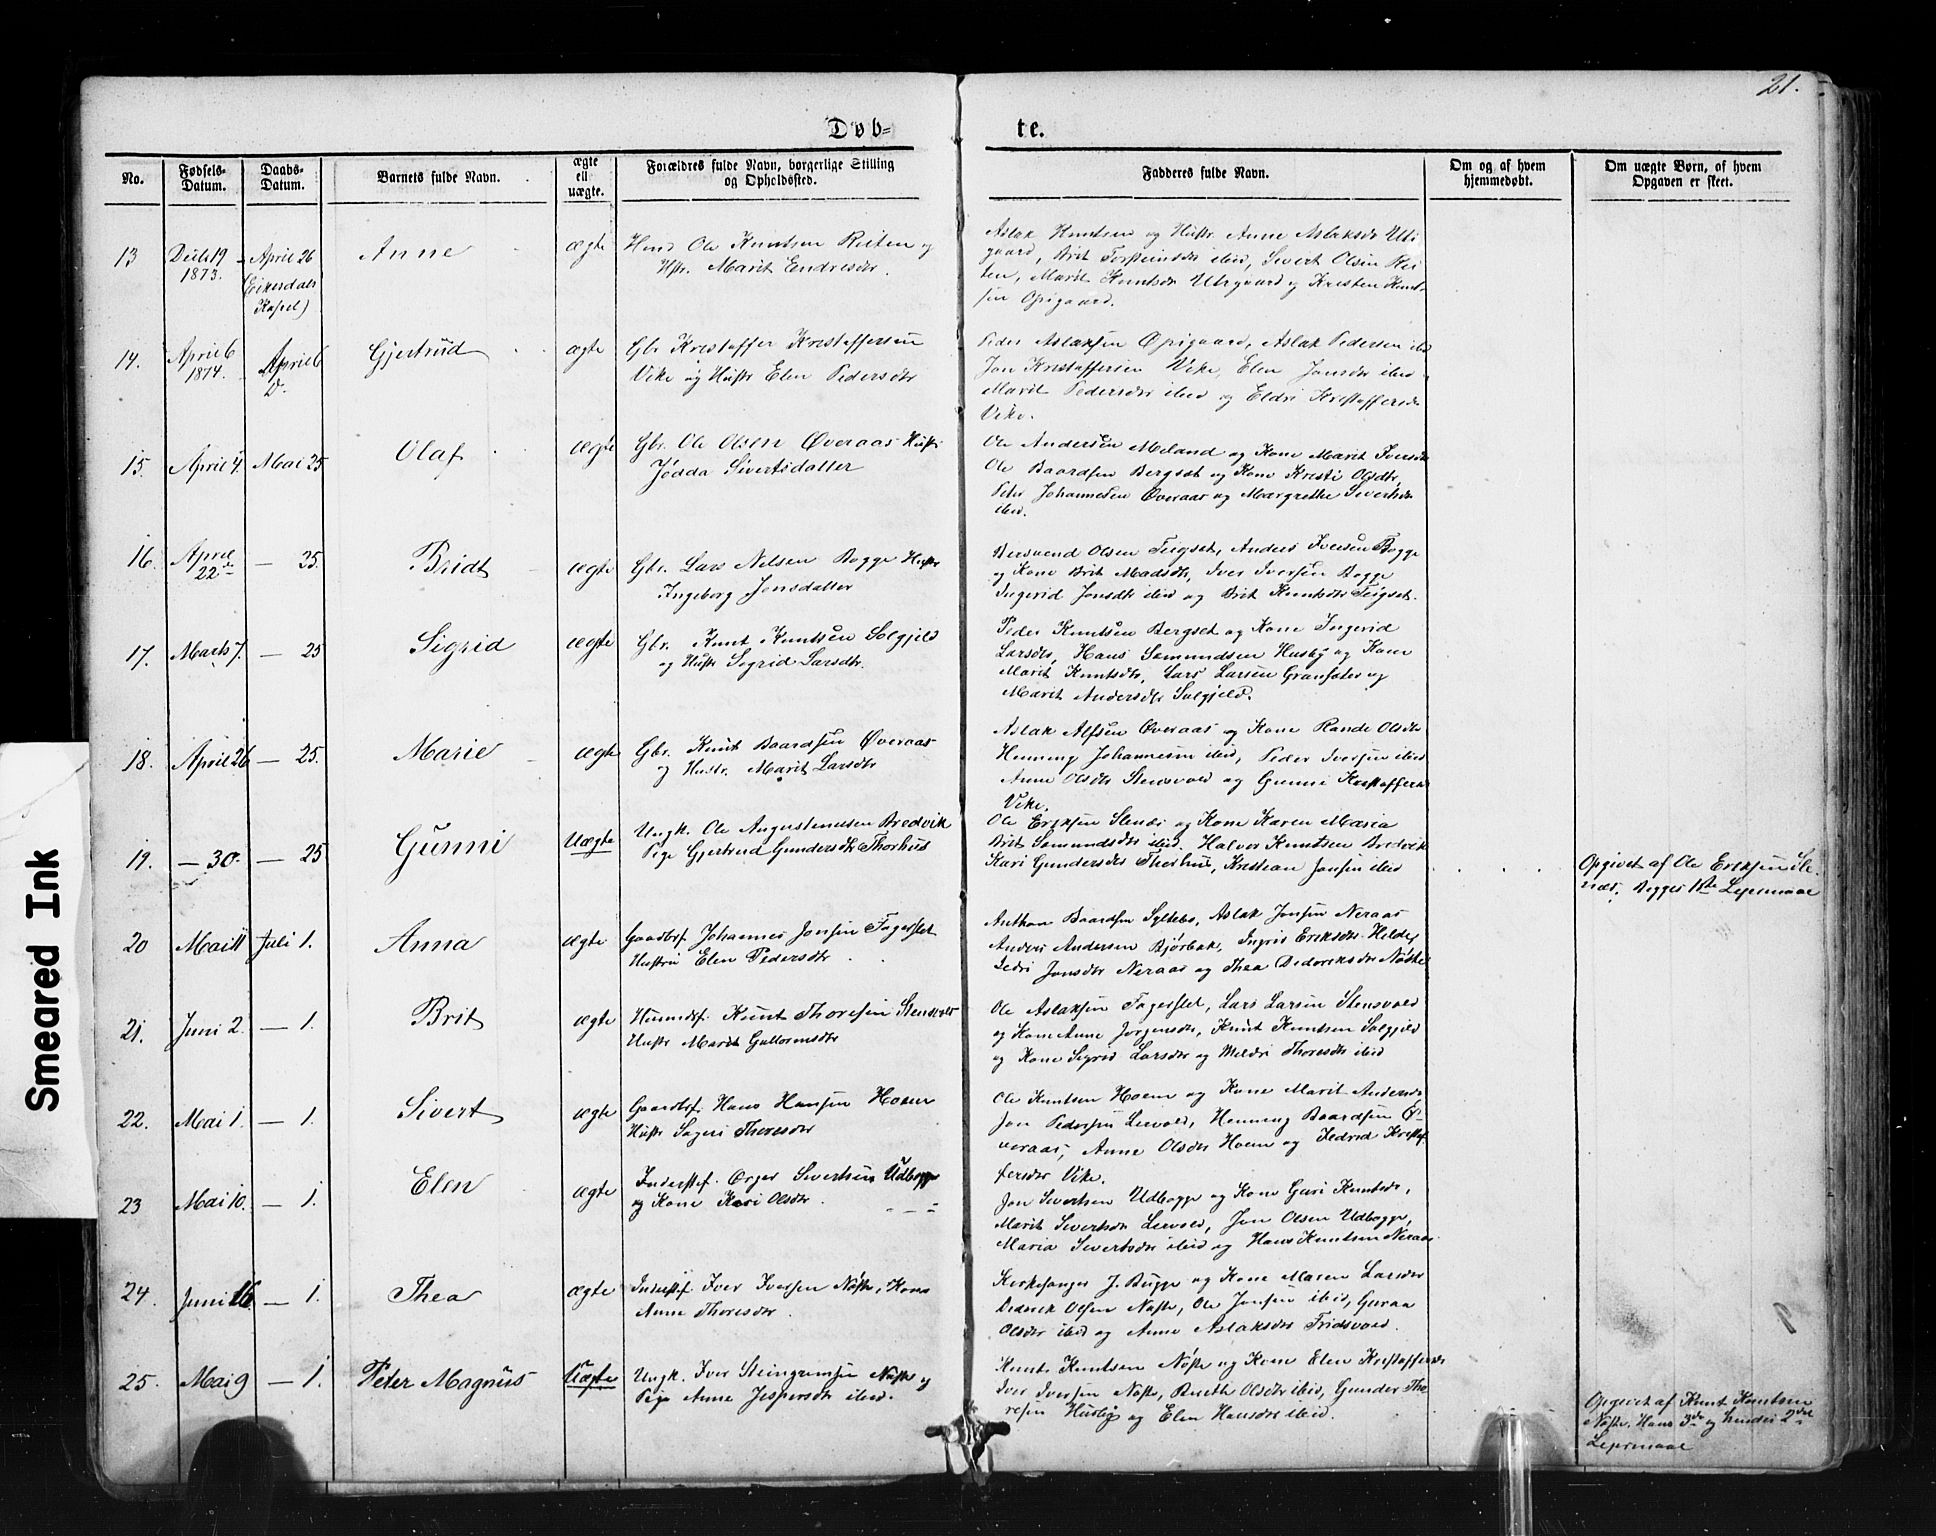 21.
Døb-
te.
No.
Fødsels-
Datum.
Daabs-
Datum.
Barnets fulde Navn.
ægte
ell
uægte.
Forældres fulde Navn, borgerlige Stilling
og Opholdssted.
Faddernes fulde Navn.
Om og af hvem
hjemmedøbt.
Om uægte Børn, af hvem
Opgaven er skeet.
13
Decb 19
1873.
April 26
(Eikisdals
Kapel)
Anne
ægte
Ole Knutsen Reiten og
Hstr. Marit Endresdtr.
Aslak Knutsen og Hustr. Anne Aslaksdr Uti
gaard, Brit Torsteinsdtr ibid, Sivert Olsen Rei
ten, Marit Knutsdtr Utigaard og Kristen Knut
sen Opigaard.
14.
April 6
1874.
April 6
D.
Gjertrud
ægte
Gbr Kristoffer Kristoffersen
Vike og Hustr Elen Pedersdtr
Peder Aslaksen Opigaard, Aslak Pedersen ibd
Jon Kristoffersen Vike, Elen Jonsdtr ibid
Marit Pedersdtr ibid og Eldri Kristoffersdr
Vike.
15.
April 4.
Mai 25
Olaf
ægte
Gbr. Ole Olsen Øveraas Hustr
Jødda Sivertsdatter
Ole Andersen Meland og Kone Marit Iversdr
Ole Baardsen Bergset og Kone Kristi Olsdtr,
Peter Johannesen Øveraas og Margrethe Sivertsdr
ibid.
16.
April
22de
— 25.
Bridt
ægte
Gbr. Lars Nilsen Bogge Hustr
Ingeborg Jonsdatter
Bersvend Olsen Teigset, Anders Iversen Bogge
og Kone Brit Madsdtr, Iver Iversen Bogge
Ingerid Jonsdtr ibid og Brit Knutsdtr Teigset.
17.
Marts 7.
— 25
Sigrid
ægte
Gbr. Knut Knutsen Solgjeld
og Hustr Sigrid Larsdtr.
Peder Knutsen Bergset og Kone Ingerid
Larsdtr, Hans Samundsen Husby og Kone
Marit Knutsdtr, Lars Larsen Gransæter og
Marit Andersdtr Solgjeld.
18.
April 26
— 25.
Marie
ægte
Gbr. Knut Baardsen Øveraas
og Hustr. Marit Larsdtr
Aslak Alfsen Øveraas og Kone Rande Olsdtr
Henning Johannesen ibid, Peder Iversen ibid
Anne Olsdtr Stensvold og Gunni Kristoffersdr
Vike.
19.
— 30.
— 25
Gunni
Uægte
Ungk. Ole Augustinusen Bredvik
Pige Gjertrud Gundersdtr Thorhus
Ole Eriksen Slenes og Kone Karen Maria
Brit Samundsdtr ibid. Halvor Knutsen Bredvik
Kari Gundersdtr Thorhus, Kristian Jonsen ibid
Opgivet af Ole Eriksen Sle
næs. Begges 1ste Leiermaal
20
Mai 11
Juli 1.
Anna
ægte
Gaardbr. Johannes Jonsen Fagerslet
Hustru Elen Pedersdtr
Anthon Baardsen Syltebø, Aslak Jonsen Neraas
Anders Andersen Bjørbak, Ingrid Eriksdtr Helde,
Jedri Jonsdtr Neraas og Thea Dideriksdtr Nøste
21.
Juni 2.
— 1.
Brit
ægte
Husmdsf. Knut Thoresen Stensvold
Hustr Marit Guttormsdtr
Ole Aslaksen Fagerslet, Lars Larsen Stensvold
og Kone Anne Jørgensdtr, Knut Knutsen Solgjeld
og Kone Sigrid Larsdtr og Meldri Thoresdtr ibid
22.
Mai 1.
— 1.
Sivert
ægte
Gaardbr. Hans Hansen Hoem
Hustr Sigri Thoresdtr
Ole Knutsen Hoem og Kone Marit Andersdr
Jon Pedersen Lervold, Henning Baardsen Ø-
veraas, Anne Olsdtr Hoem og Jedrid Kristof
fersdtr Vike.
23
Mai 10.
— 1.
Elen
ægte
Inderstsf. Ørger Sivertsen Udbogge
og Kone Kari Olsdtr.
Jon Sivertsen Udbogge og Kone Guri Knutsdr,
Marit Sivertsdr Lervold, Jon Olsen Udbogge,
Maria Sivertsdtr ibid og Hans Knutsen Neraas
24.
Juni 16
— 1.
Thea
ægte
Inderstsf Iver Iversen Nøste, Kone
Anne Thoresdtr.
Kirkesanger J. Bugge og Kone Maren Larsdtr
Diderik Olsen Nøste, Ole Jonsen ibid, Guraa
Olsdtr ibid og Anne Aslaksdtr Fridsvold.
25.
Mai 9
— 1.
Peter Magnus
Uægte
Ungk. Iver Steingrimsen Nøste og
Pige Anne Jespersdtr ibid.
Knut Knutsen Nøste og Kone Elen Kristoffersdr
Iver Iversen Nøste, Olsdtr ibid, Gunder Tho-
resen Husby og Elen Hansdtr ibid.
Opgivet af Knut Knutsen
Nøste. Hans 3de og hendes 2det
Leiermaal
Smeared Ink